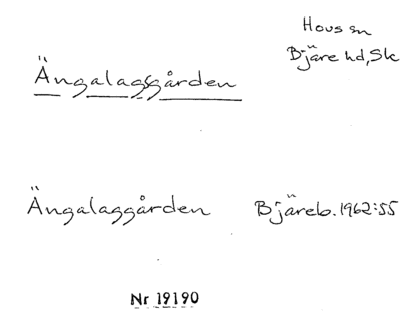 Hovs sn
Bjäre hd, Sk
Ängalaggården
Ängalaggården Bjäreb. 1962:55
Nr 19190